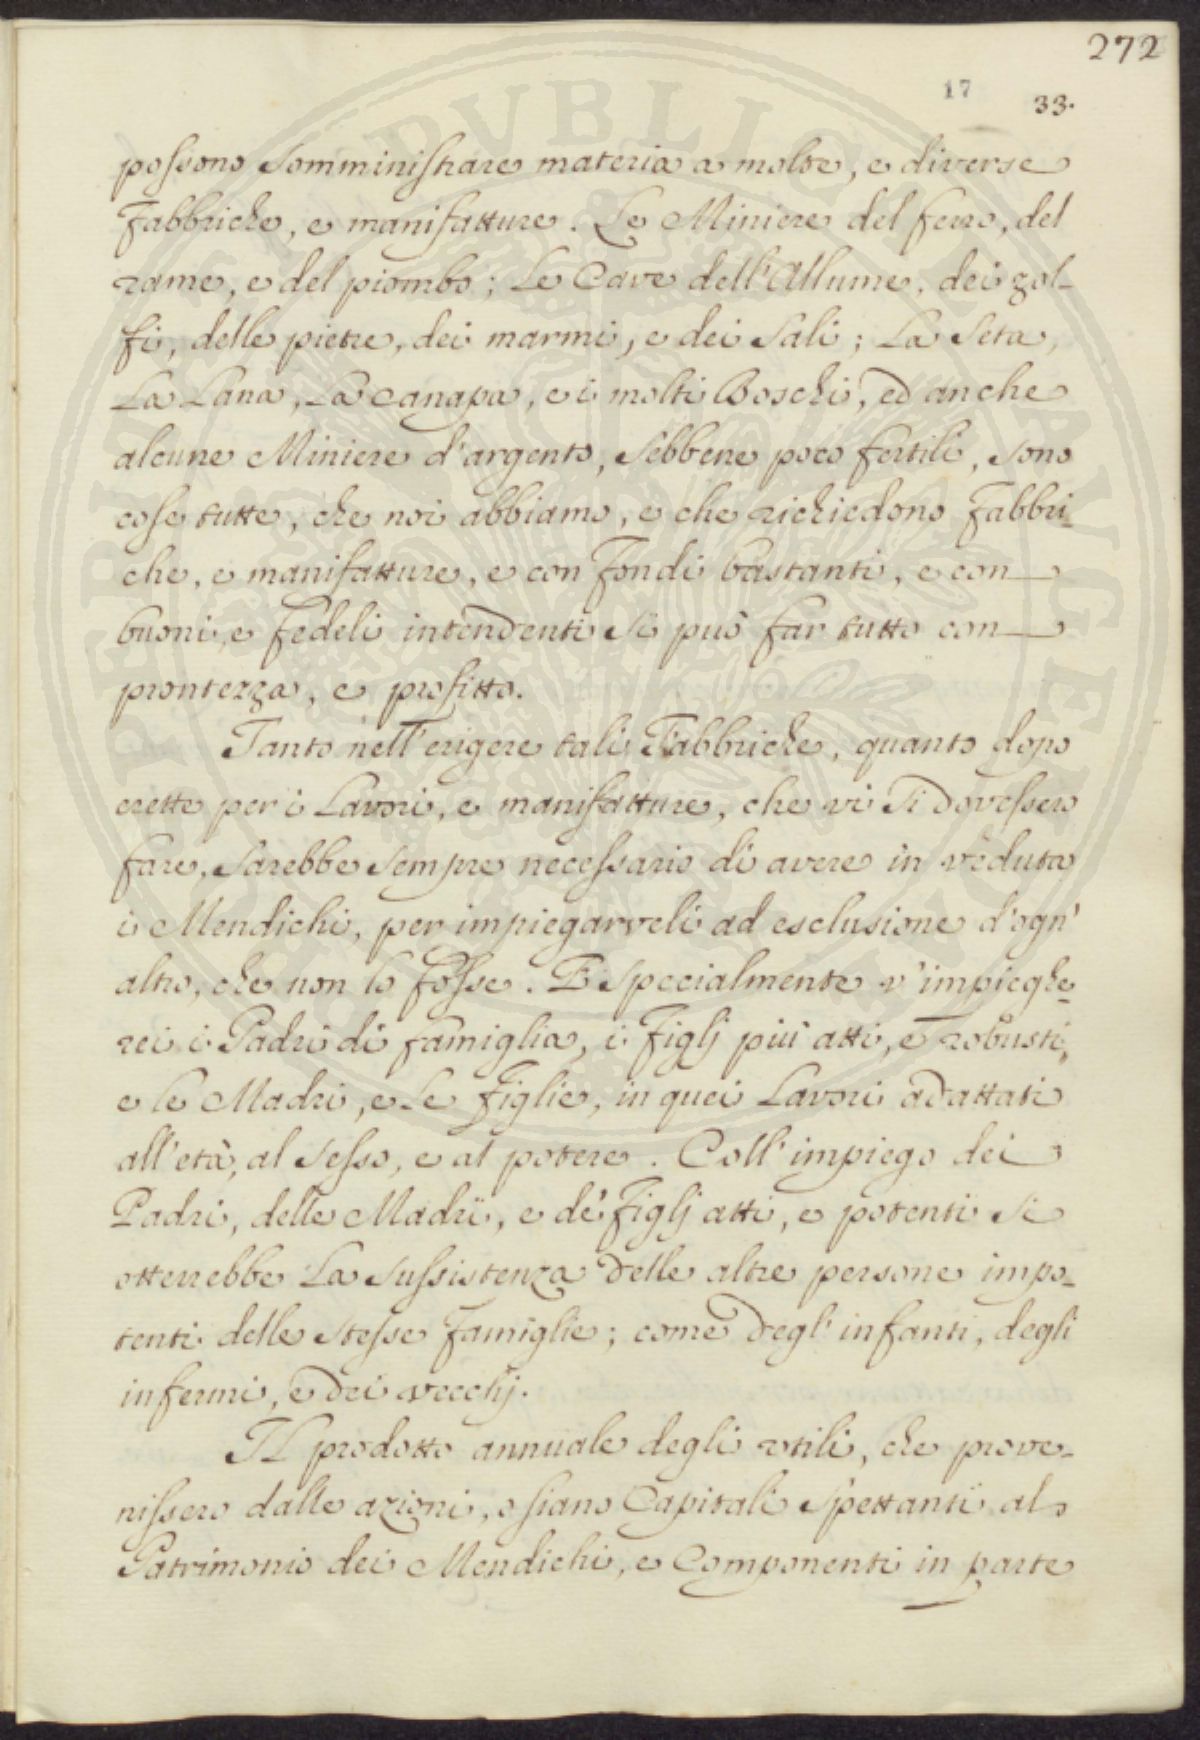 272
17
33.
possono somministrare materia a molte, e diverse
Fabbriche, e manifatture. Le Miniere del ferro, del
rame, e del piombo; Le Cave dell'Allume, dei zol-
fi, delle pietre, dei marmi, e dei Sali; La Seta,
La Lana, La Canapa, e i molti Boschi, ed anche
alcune Miniere d'argento, sebbene poco fertili, sono
cose tutte, che noi abbiamo, e che richiedono Fabbri-
che, e manifatture, e con Fondi bastanti, e con
buoni, e fedeli intendenti si può far tutto con
prontezza, e profitto.
Tanto nell'erigere tali Fabbriche, quanto dopo
erette per i Lavori, e manifatture, che vi si dovessero
fare, sarebbe sempre necessario di avere in veduta
i Mendichi, per impiegarveli ad esclusione d'ogn'
altro, che non lo fosse. E specialmente v'impieghe-
rei i Padri di famiglia, i Figlj più atti, e robusti,
e le Madri, e Le Figlie, in quei Lavori adattati
all'età, al sesso, e al potere. Coll'impiego dei
Padri, delle Madri, e de' Figlj atti, e potenti si
otterrebbe La sussistenza delle altre persone impo-
tenti delle stesse Famiglie; come degl'infanti, degli
infermi, e dei vecchj.
Il prodotto annuale degli utili, che prove-
nissero dalle azioni, o siano Capitali spettanti al
Patrimonio dei Mendichi, e Componenti in parte